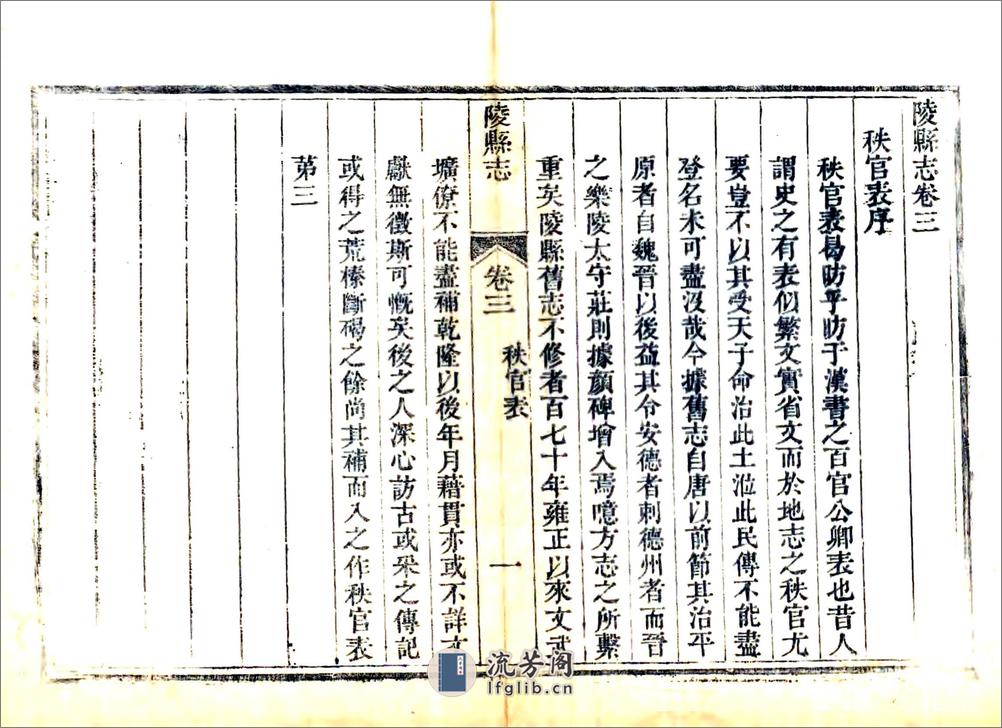 陵縣志卷三
秩官表序
秩官表曷昉乎昉于漢書之百官公卿表也昔人
謂史之有表似繁文實省文而於地志之秩官尤
要豈不以其受天子命治此土涖此民傳不能盡
登名未可盡沒哉今據舊志自唐以前節其治平
原者自魏晉以後益其令安德者刺德州者而晉
之樂陵太守莊則據顏碑增入焉噫方志之所繫
重矣陵縣舊志不修者百七十年雍正以來文武
陵縣志
卷三
秩官表
一
壙僚不能盡補乾隆以後年月藉貫亦或不詳文
獻無徵斯可慨矣後之人深心訪古或采之傳記
或得之荒榛斷碣之餘尚其補而入之作秩官表
第三
流芳阁
lfglib.cn